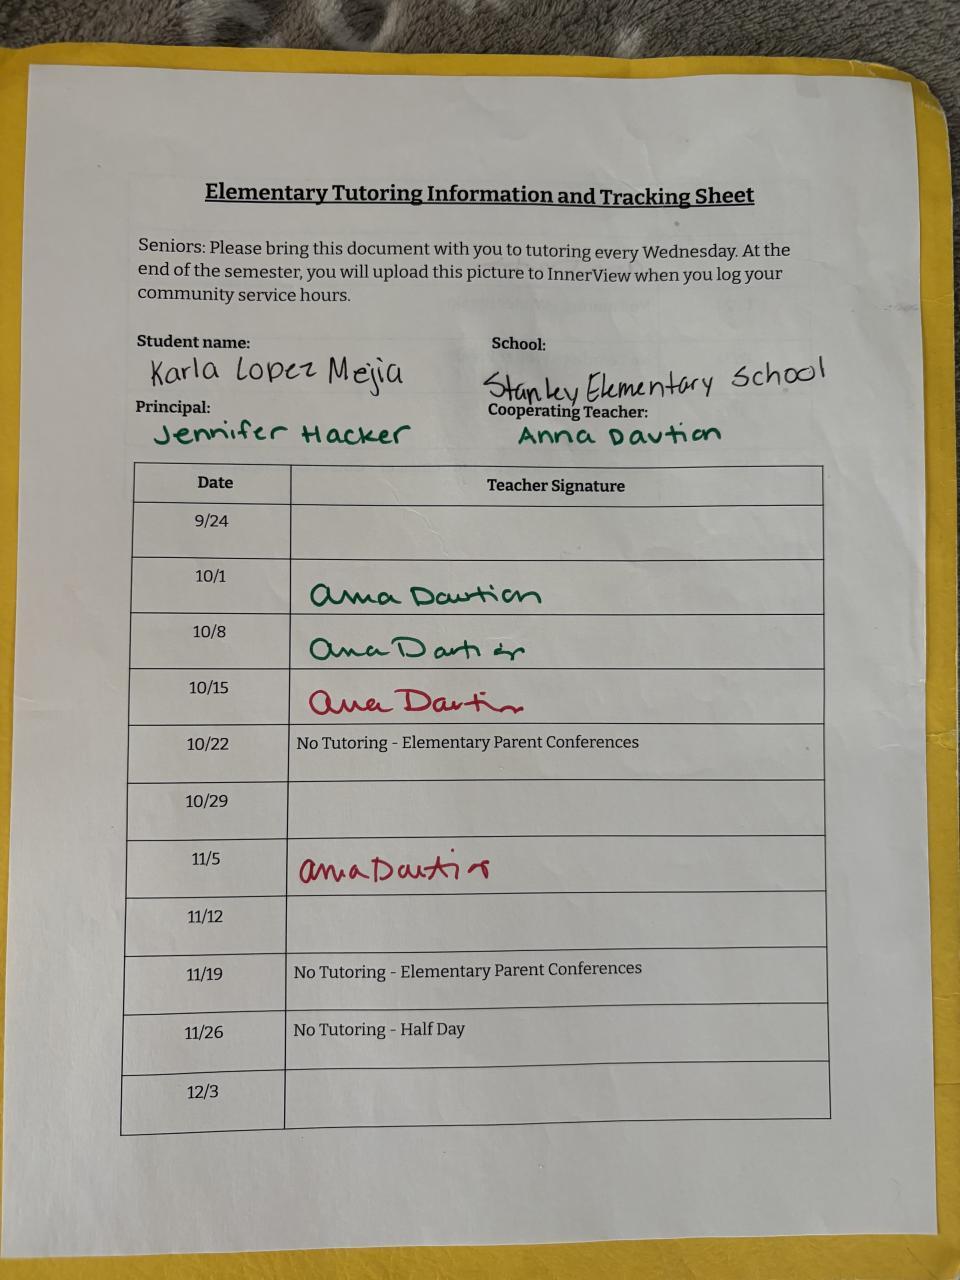 Elementary Tutoring Information and Tracking Sheet
Seniors: Please bring this document with you to tutoring every Wednesday. At the
end of the semester, you will upload this picture to InnerView when you log your
community service hours.
Student name:
Karla Lopez Mejia
School:
Stanley Elementary School
Principal:
Jennifer Hacker
Cooperating Teacher:
Anna Davtian
Date Teacher Signature
9/24
10/1 Anna Davtian
10/8 Ana Davtian
10/15 Ana Davtian
10/22 No Tutoring - Elementary Parent Conferences
10/29
11/5 Anna Davtian
11/12
11/19 No Tutoring - Elementary Parent Conferences
11/26 No Tutoring - Half Day
12/3